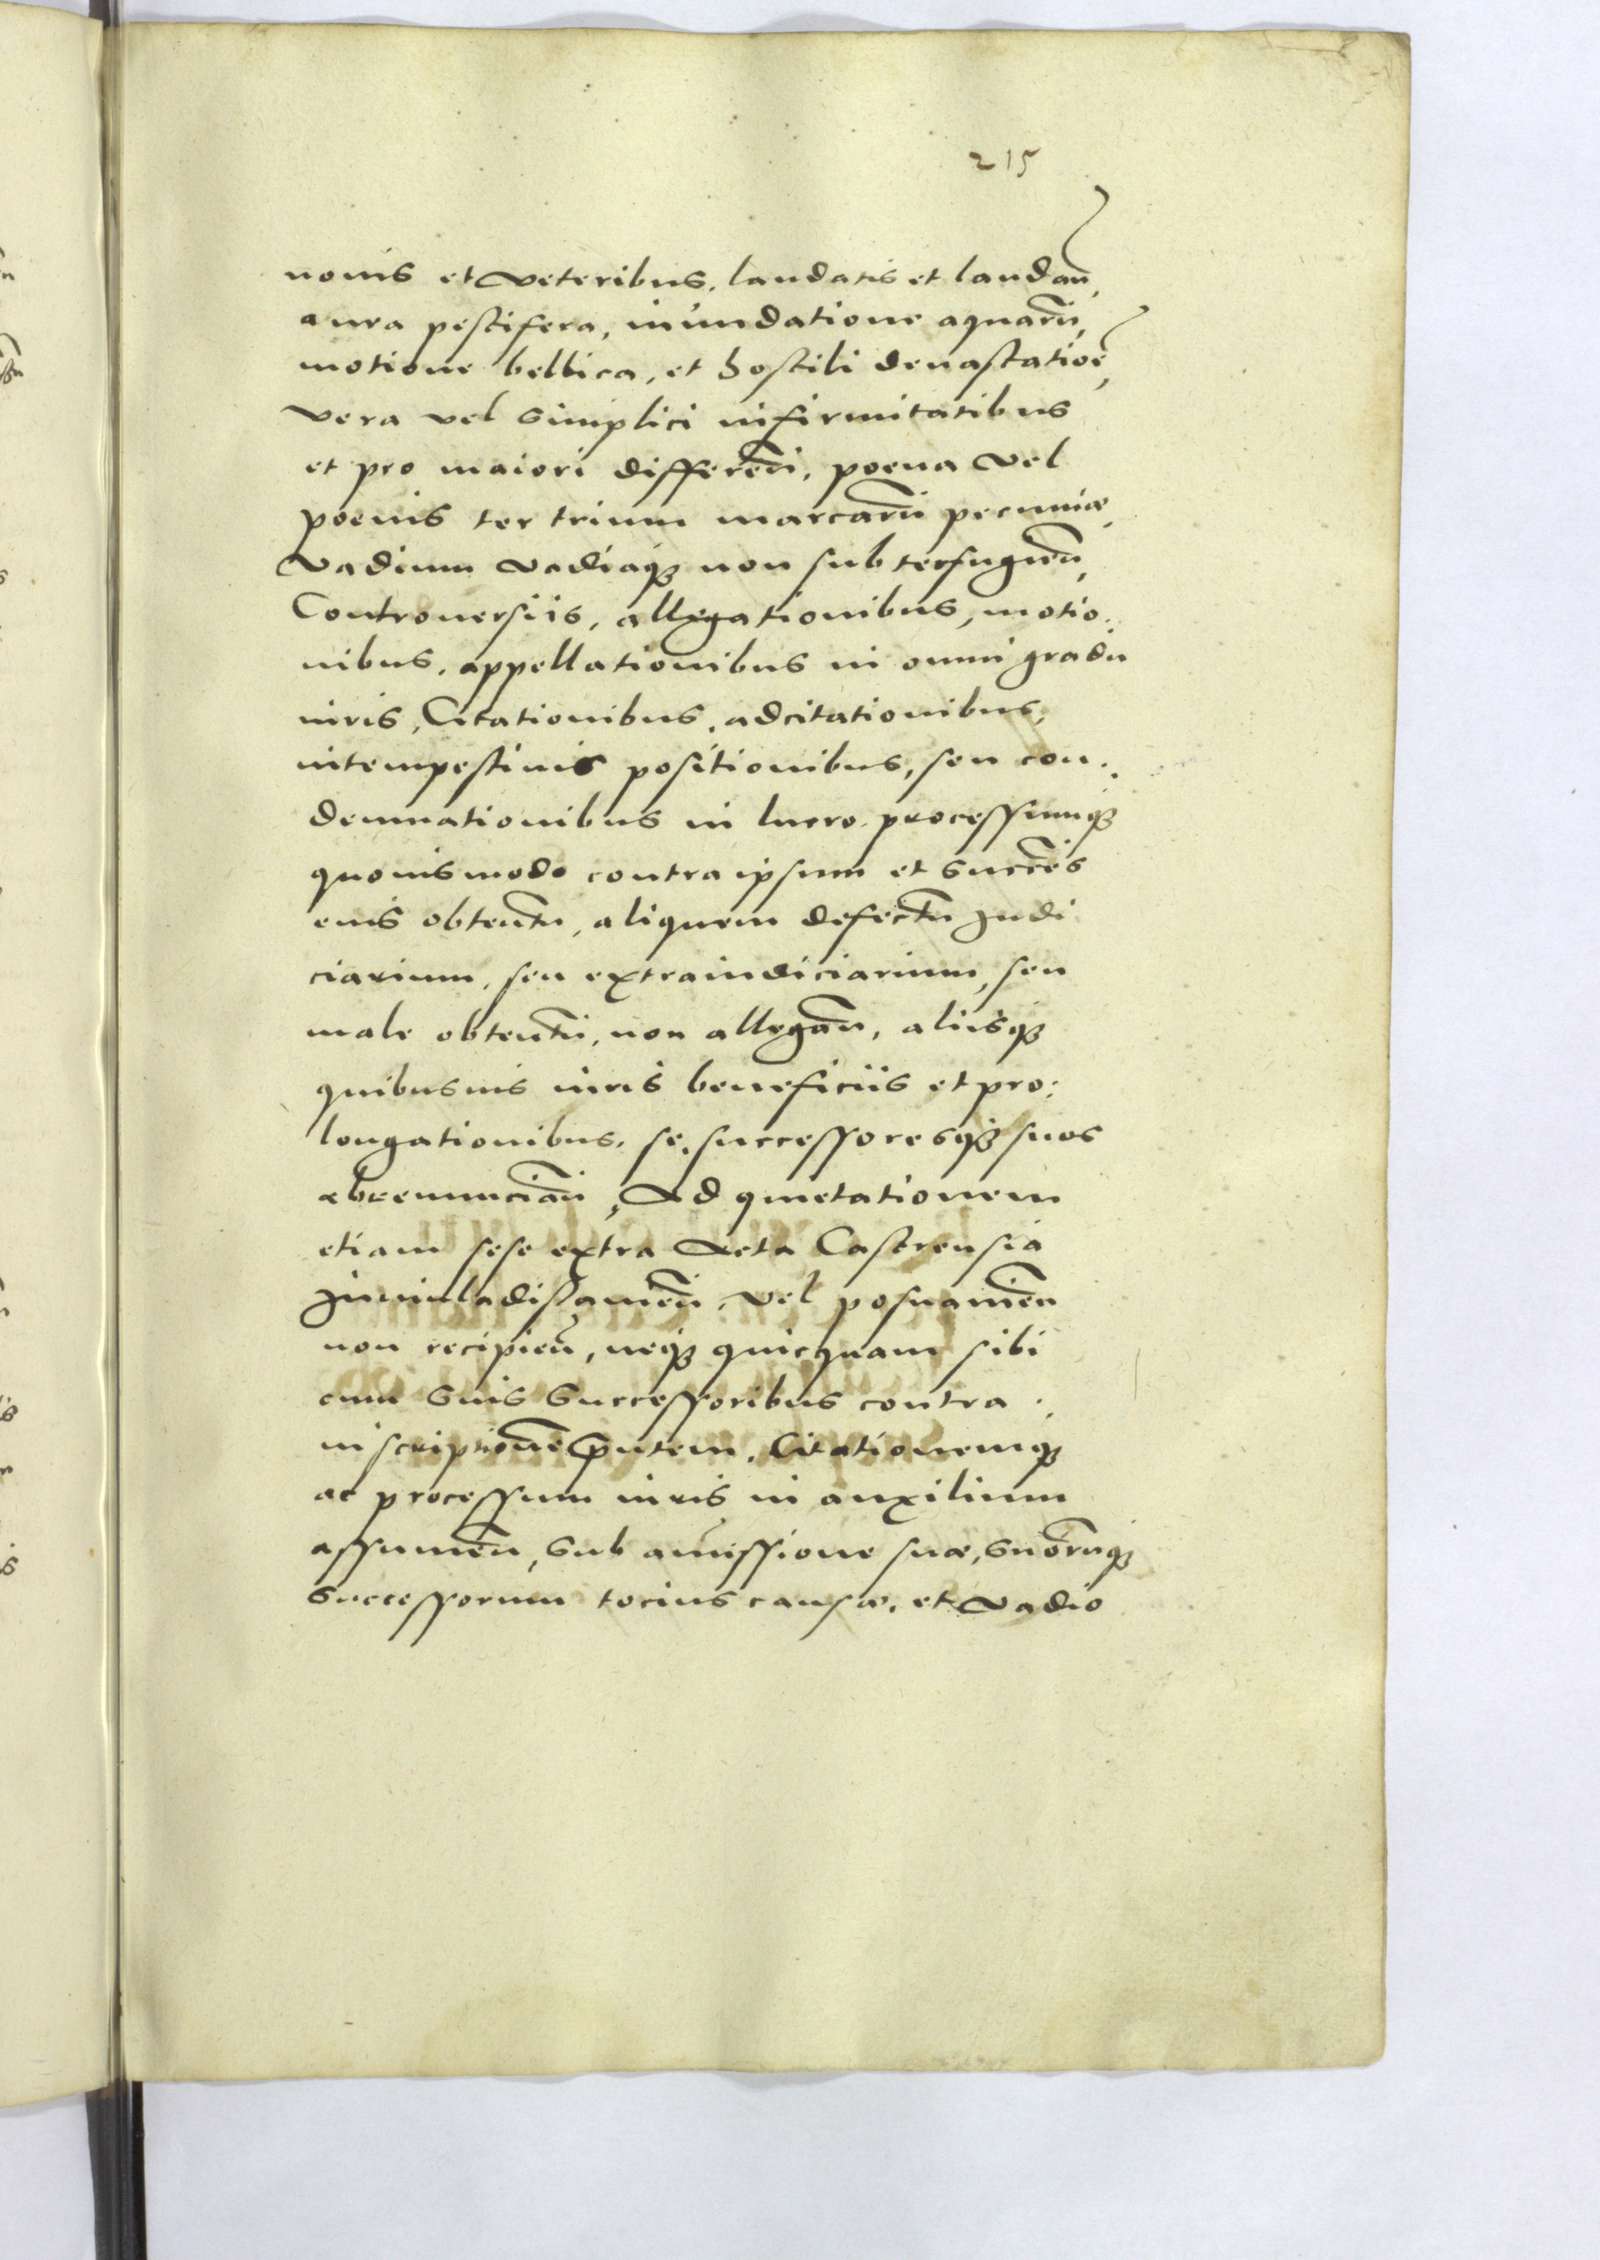 215
nouis et veteribus, laudatis et laudan̄,
aura pestifera, inundatione aquarū,
motione bellica, et hostili deuastatioē,
vera vel simplici infirmitatibus
et pro maiori differen̄, poena vel
poenis ter trium marcarū pecuniæ,
Vadium vadiaqꝫ non subterfugien̄,
Controuersiis, allegationibus, motio:
nibus, appellationibus in omni gradu
iuris, Citationibus, adcitationibus,
intempestiuis positionibus, seu con:
demnationibus in lucro processuumqꝫ
quouismodo contra ipsum et succēs
eius obtentū, aliquem defectū Judi
ciarium, seu extraiudiciarium, seu
male obtentū, non allegan̄, aliisqꝫ
quibusuis iuris beneficiis et pro:
longationibus, se, successoresqꝫ suos
abrenuncian̄, Ad quietationem
etiam sese extra Acta Castrensia
Juniuladislauien̄, vel posnanien̄
non recipien̄, neqꝫ quicquam sibi
cum suis Successoribus contra
inscriptionē pn̄tem, Citationemqꝫ
ac processum iuris in auxilium
assumen̄, sub amissione suæ, suorūqꝫ
Successorum tocius causæ, et vadio